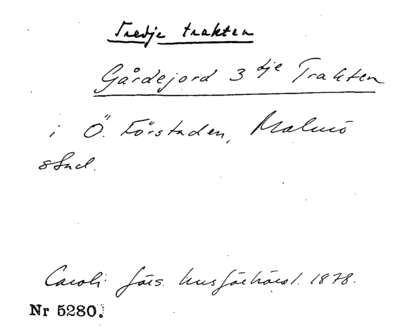 Tredje trakten
Gårdejord 3dje Trakten
i Ö. Förstaden, Malmö
stad.
Caroli förs. husförhörsl. 1878.
Nr 5280.